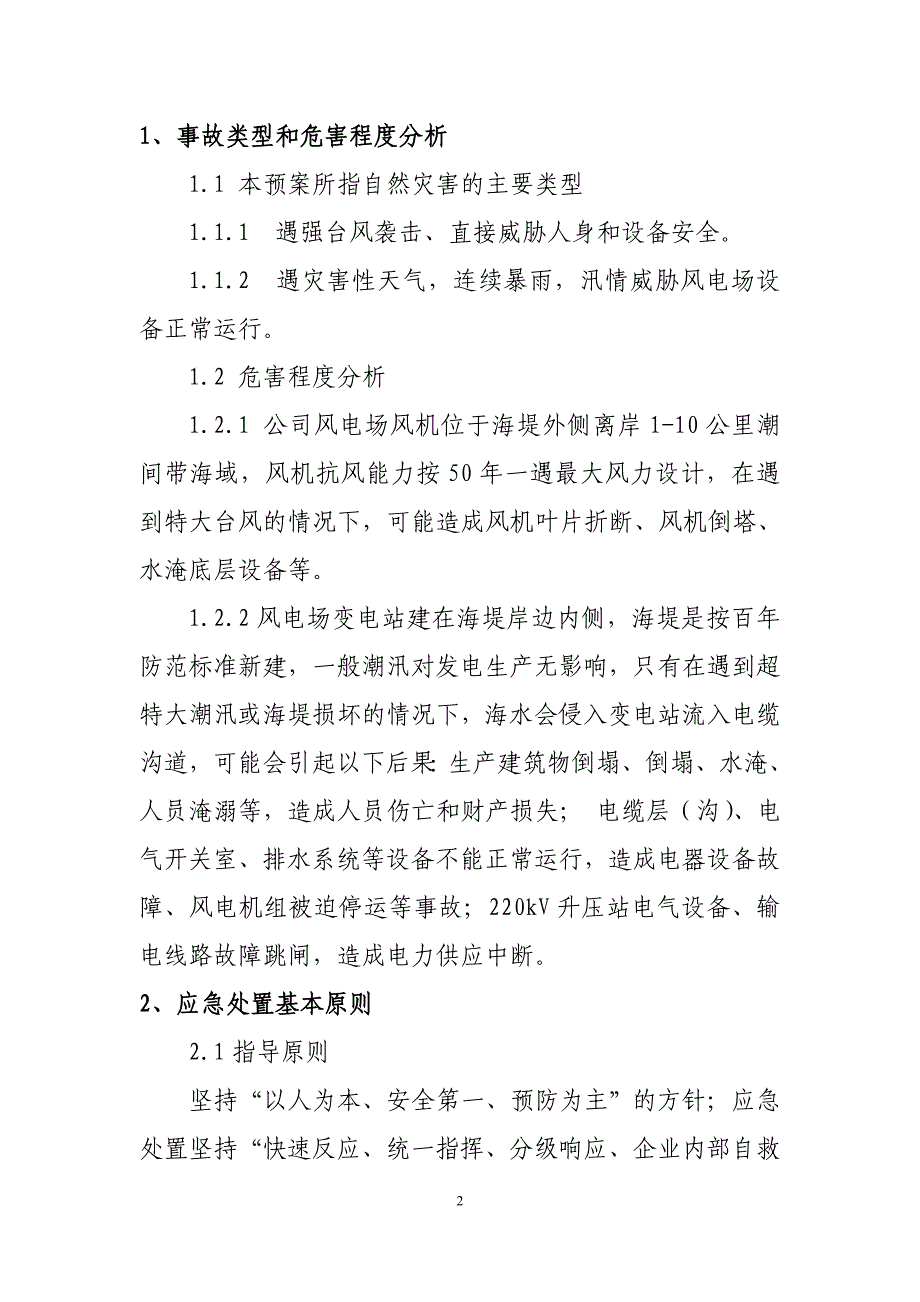 1、事故类型和危害程度分析
1.1 本预案所指自然灾害的主要类型
1.1.1 遇强台风袭击、直接威胁人身和设备安全。
1.1.2 遇灾害性天气，连续暴雨，汛情威胁风电场设
备正常运行。
1.2 危害程度分析
1.2.1 公司风电场风机位于海堤外侧离岸 1-10 公里潮
间带海域，风机抗风能力按 50 年一遇最大风力设计，在遇
到特大台风的情况下，可能造成风机叶片折断、风机倒塔、
水淹底层设备等。
1.2.2 风电场变电站建在海堤岸边内侧，海堤是按百年
防范标准新建，一般潮汛对发电生产无影响，只有在遇到超
特大潮汛或海堤损坏的情况下，海水会侵入变电站流入电缆
沟道，可能会引起以下后果：生产建筑物倒塌、倒塌、水淹、
人员淹溺等，造成人员伤亡和财产损失； 电缆层（沟）、电
气开关室、排水系统等设备不能正常运行，造成电器设备故
障、风电机组被迫停运等事故；220kV 升压站电气设备、输
电线路故障跳闸，造成电力供应中断。
2、应急处置基本原则
2.1 指导原则
坚持“以人为本、安全第一、预防为主”的方针；应急
处置坚持“快速反应、统一指挥、分级响应、企业内部自救
2